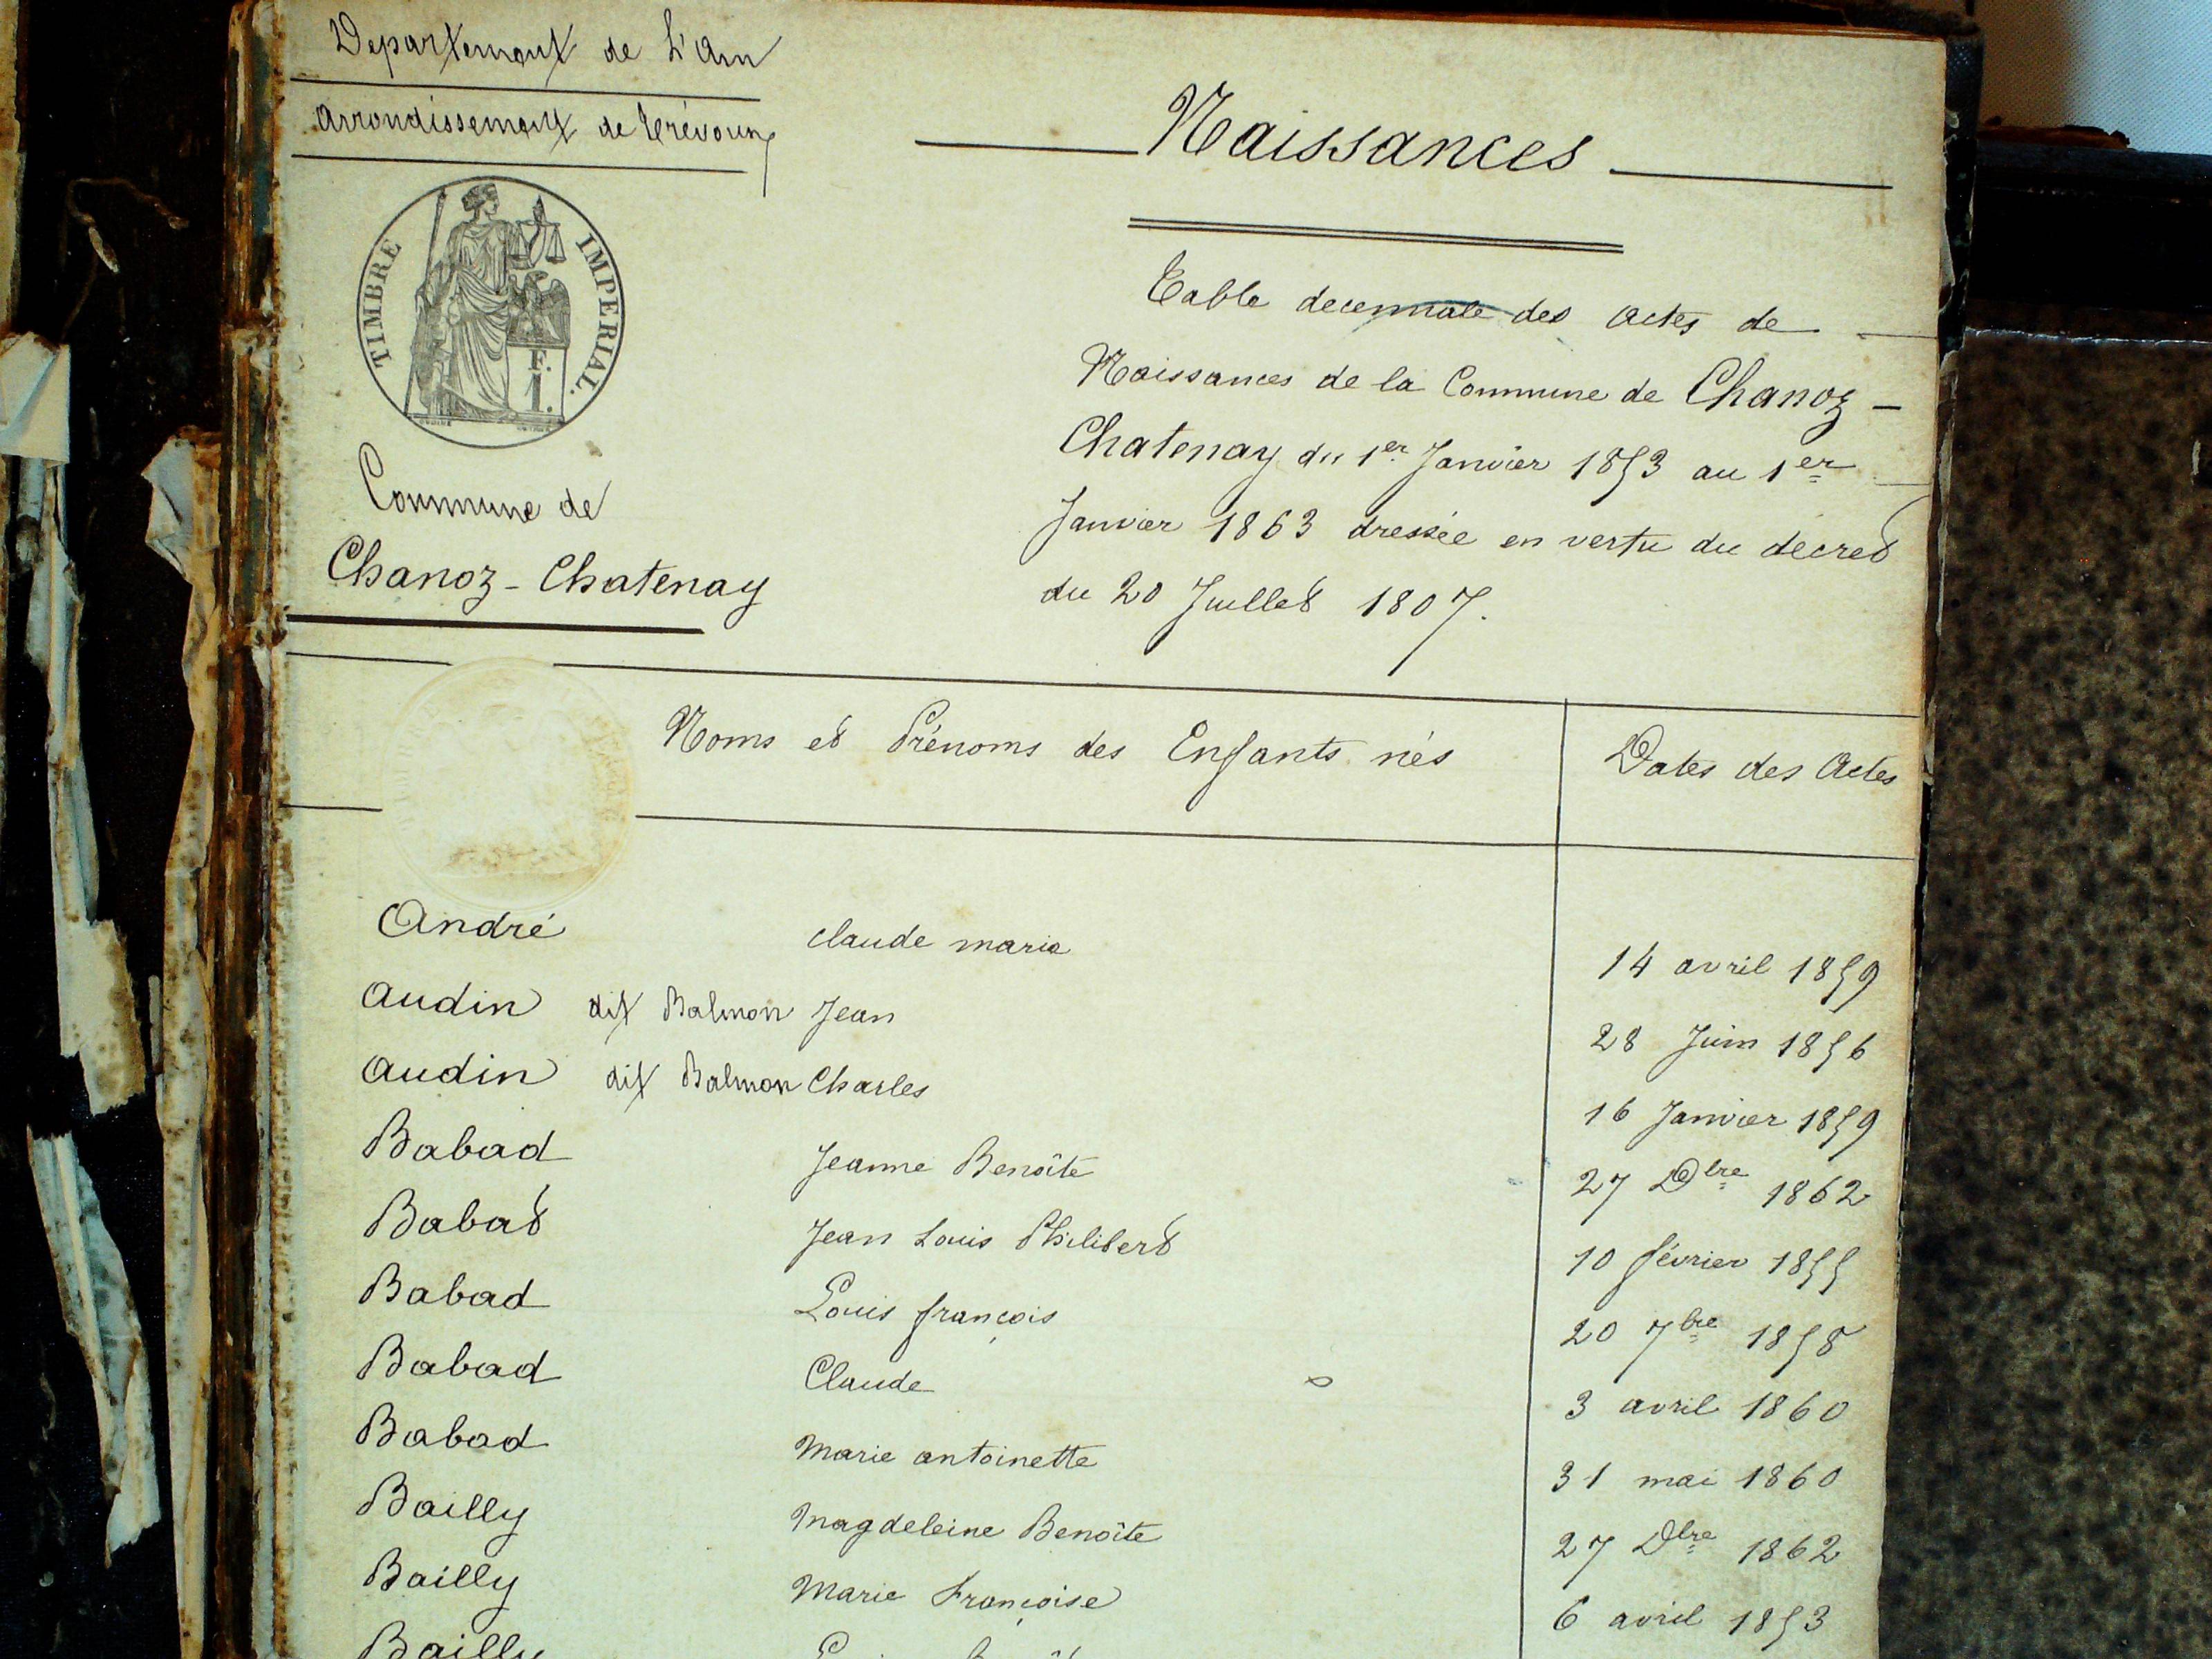 Departement de L'Ain
Arrondissement de Trévoux
Naissances
TIMBRE IMPERIAL.
F.
1.
Table decennale des actes de
Naissances de la Commune de Chanoz -
Chatenay du 1er Janvier 1853 au 1er
Janvier 1863 dressée en vertu du decret
du 20 Juillet 1807.
Commune de
Chanoz - Chatenay
Noms et Prénoms des Enfants nés Dates des Actes
André claude marie 14 avril 1859
Audin dit Balmon Jean 28 Juin 1856
Audin dit Balmon Charles 16 Janvier 1859
Babad Jeanne Benoîte 27 Dbre 1862
Babat Jean Louis Philibert 10 février 1855
Babad Louis françois 20 7bre 1858
Babad Claude 3 avril 1860
Babad Marie antoinette 31 mai 1860
Bailly Magdeleine Benoîte 27 Dbre 1862
Bailly Marie Françoise 6 avril 1853
Bailly